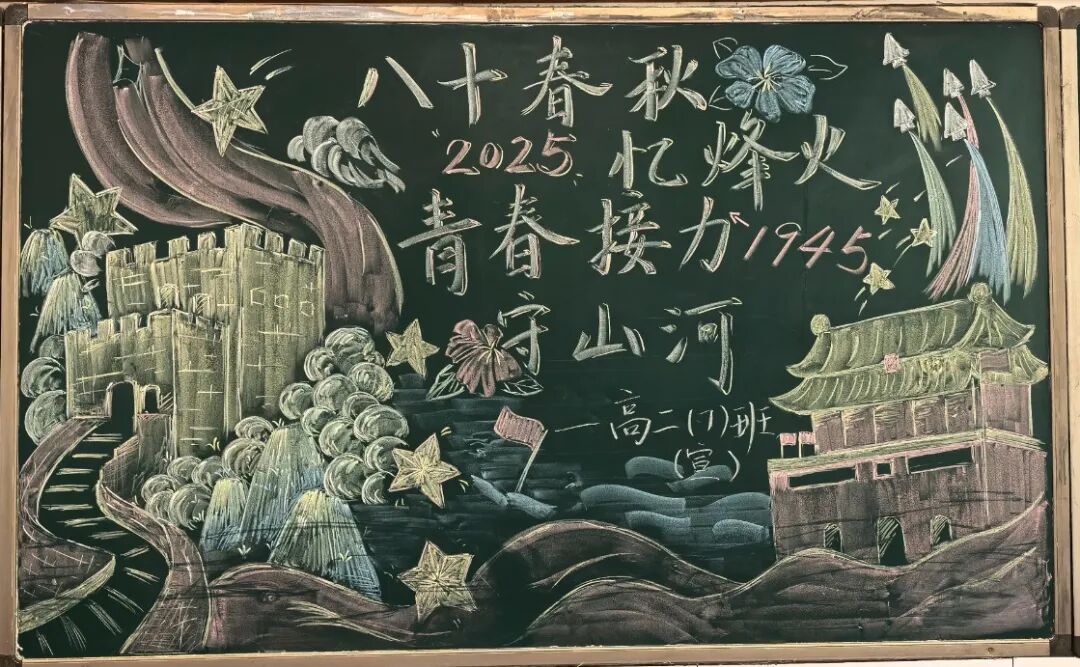 八十春秋
"2025, 忆烽火
青春接力 1945
守山河
一高二(7)班
(宣)